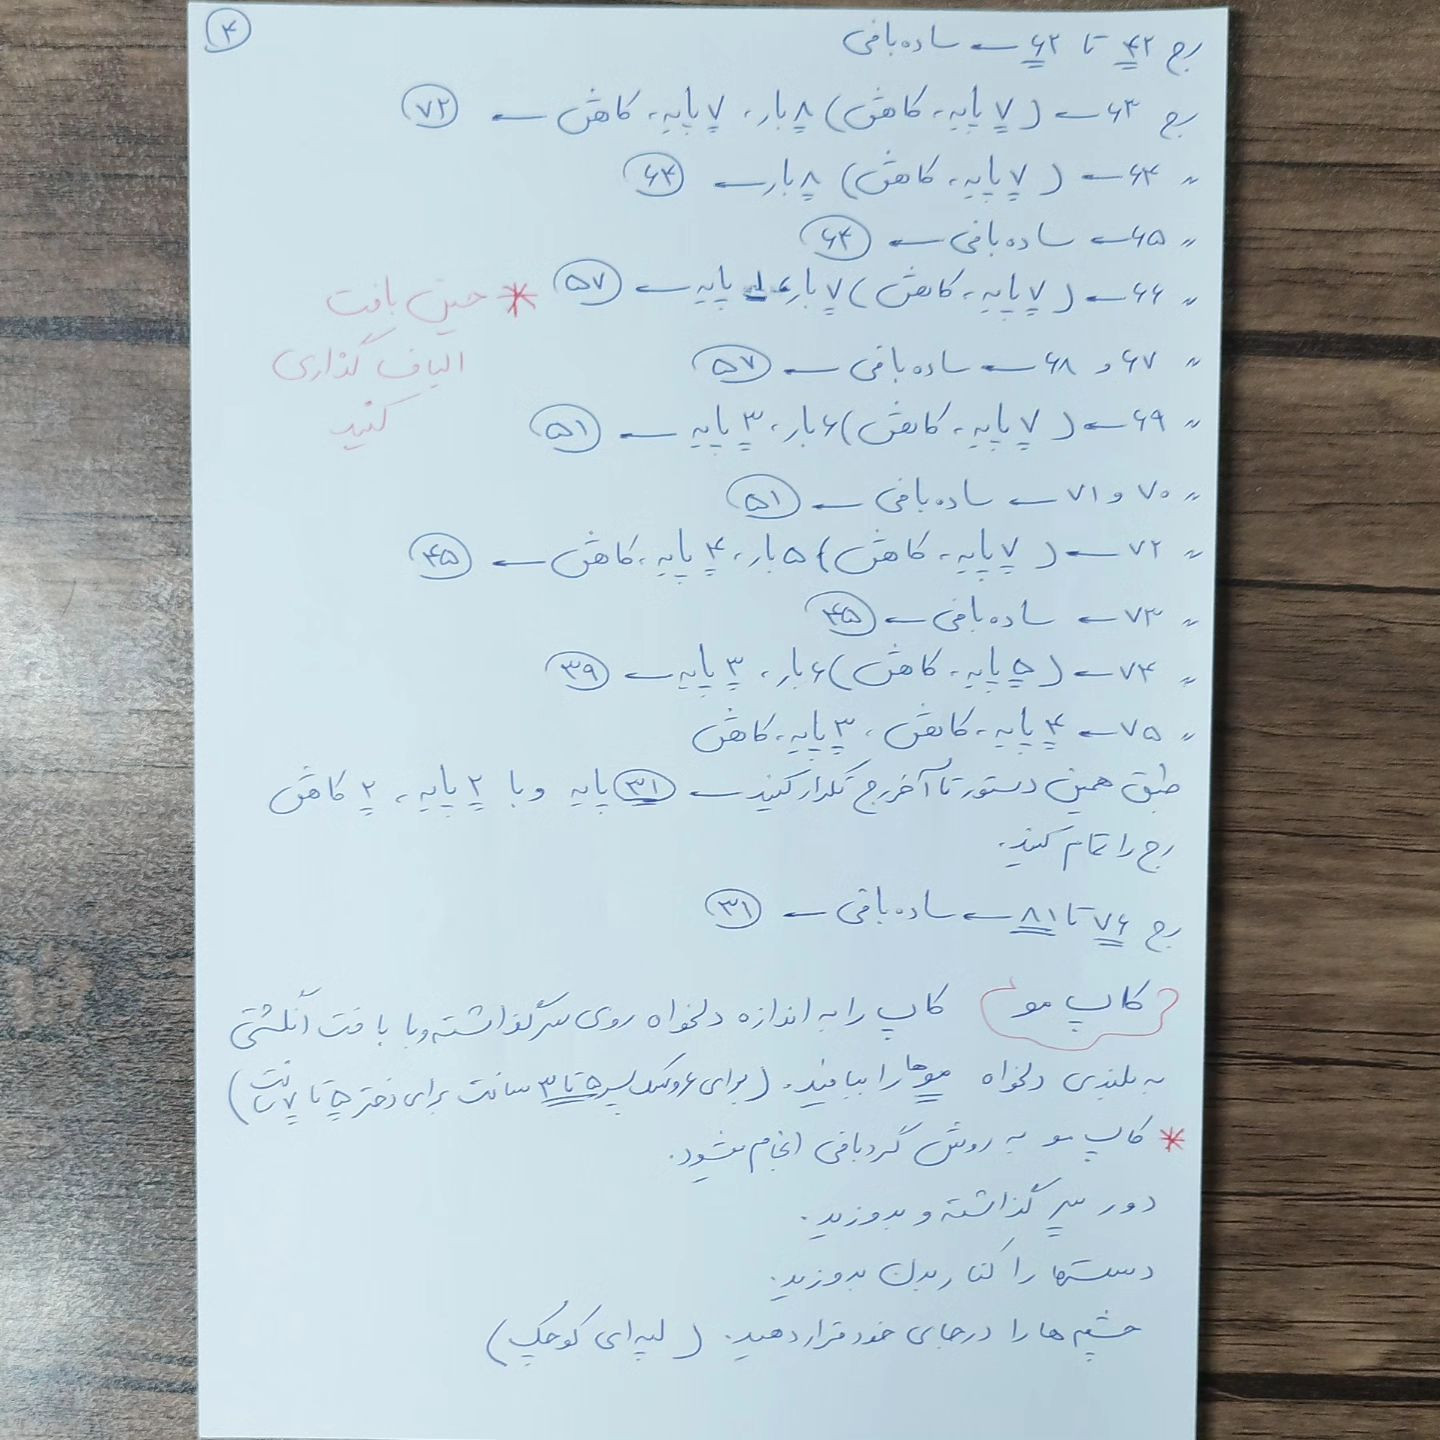 ۴
رج ۴۲ تا ۶۲ ← ساده بافی
رج ۶۳ ← (۷ پایه، کاهش) ۸ بار، ۷ پایه، کاهش ← ۷۲
〃 ۶۴ ← (۷ پایه، کاهش) ۸ بار ← ۶۴
〃 ۶۵ ← ساده بافی ← ۶۴
〃 ۶۶ ← (۷ پایه، کاهش) ۷ بار، ۱ پایه ← ۵۷
* حین بافت
الیاف گذاری
کنید
〃 ۶۷ و ۶۸ ← ساده بافی ← ۵۷
〃 ۶۹ ← (۷ پایه، کاهش) ۶ بار، ۳ پایه ← ۵۱
〃 ۷۰ و ۷۱ ← ساده بافی ← ۵۱
〃 ۷۲ ← (۷ پایه، کاهش) ۵ بار، ۴ پایه، کاهش ← ۴۵
〃 ۷۳ ← ساده بافی ← ۴۵
〃 ۷۴ ← (۵ پایه، کاهش) ۶ بار، ۳ پایه ← ۳۹
〃 ۷۵ ← ۴ پایه، کاهش، ۳ پایه، کاهش
طبق همین دستور تا آخر رج تکرار کنید ← ۳۱ پایه و با ۲ پایه، ۲ کاهش
رج را تمام کنید.
رج ۷۶ تا ۸۱ ← ساده بافی ← ۳۱
کاپ مو کاپ را به اندازه دلخواه روی سر گذاشته و با بافت انگشتی
به بلندی دلخواه موها را ببافید. (برای عروسک پسر ۵ تا ۳ سانت برای دختر ۵ تا ۷ سانت)
* کاپ مو به روش گرد بافی انجام میشود.
دور سر گذاشته و بدوزید.
دستها را کنار بدن بدوزید.
چشم ها را در جای خود قرار دهید. (لپه ای کوچک)